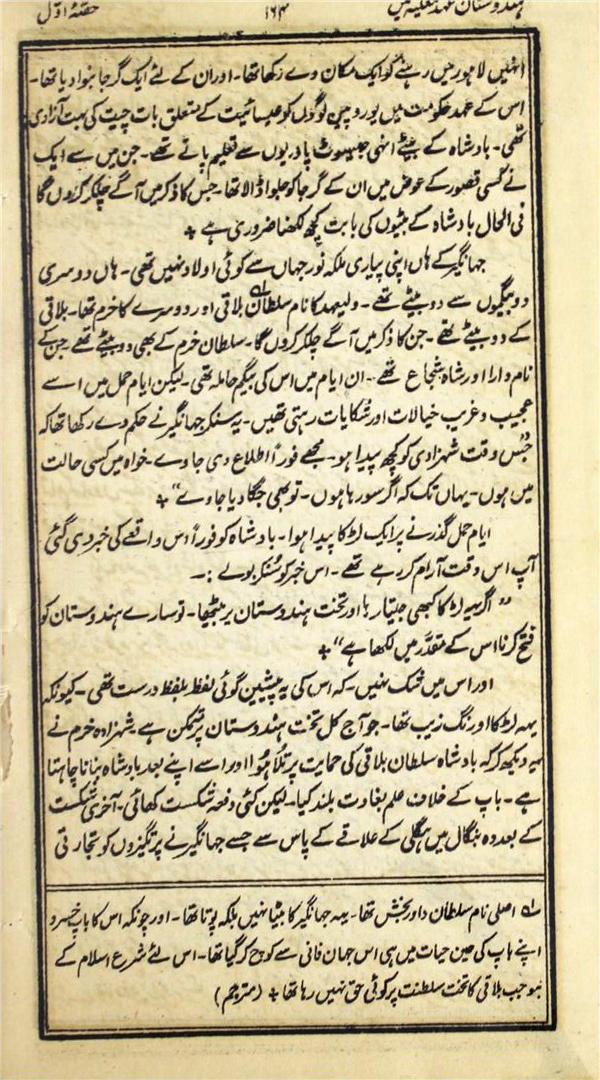 ہندوستان عہد مغلیہ میں ۱۶۴ حصّۂ اوّل
انہیں لاہور میں رہنے کو ایک مکان دے رکھا تھا۔ اور ان کے لئے ایک گرجا بنوا دیا تھا۔
اس کے عہد حکومت میں یوروپین لوگوں کو عیسائیت کے متعلق بات چیت کی بہت آزادی
تھی۔ بادشاہ کے بیٹے انہی جیسوٹ پادریوں سے تعلیم پاتے تھے۔ جن میں سے ایک
نے کسی قصور کے عوض میں ان کے گرجا کو جلوا ڈالا تھا۔ جس کا ذکر میں آگے چلکر کروں گا
فی الحال بادشاہ کے بیٹوں کی بابت کچھ لکھنا ضروری ہے +
جہانگیر کے ہاں اپنی پیاری ملکہ نور جہاں سے کوئی اولاد نہیں تھی۔ ہاں دوسری
دو بیگموں سے دو بیٹے تھے۔ ولیعہد کا نام سلطان بلاقی اور دوسرے کا خرم تھا۔ بلاقی
کے دو بیٹے تھے۔ جن کا ذکر میں آگے چلکر کروں گا۔ سلطان خرم کے بھی دو بیٹے تھے جن کے
نام دارا اور شاہ شجاع تھے۔ ان ایام میں اس کی بیگم حاملہ تھی۔ لیکن ایام حمل میں اسے
عجیب و غریب خیالات اور شکایات رہتی تھیں۔ یہ سنکر جہانگیر نے حکم دے رکھا تھا کہ
جس وقت شہزادی کو کچھ پیدا ہو۔ مجھے فوراً اطلاع دی جاوے۔ خواہ میں کسی حالت
میں ہوں۔ یہاں تک کہ اگر سو رہا ہوں۔ تو بھی جگا دیا جاوے“ +
ایام حمل گذرنے پر ایک لڑکا پیدا ہوا۔ بادشاہ کو فوراً اس واقعے کی خبر دی گئی
آپ اس وقت آرام کر رہے تھے۔ اس خبر کو سُنکر بولے :۔
”اگر یہ لڑکا کبھی جیتا رہا اور تخت ہندوستان پر بیٹھا۔ تو سارے ہندوستان کو
فتح کرنا اس کے مقدّر میں لکھا ہے“ +
اور اس میں شک نہیں۔ کہ اس کی یہ پیشین گوئی لفظ بلفظ درست تھی۔ کیونکہ
یہہ لڑکا اورنگ زیب تھا۔ جو آج کل تخت ہندوستان پر متمکن ہے۔ شہزادہ خرم نے
یہ دیکھ کر کہ بادشاہ سلطان بلاقی کی حمایت پر تُلا ہوا اور اسے اپنے بعد بادشاہ بنانا چاہتا
ہے۔ باپ کے خلاف علم بغاوت بلند کیا۔ لیکن کئی دفعہ شکست کھائی۔ آخری شکست
کے بعد وہ بنگال میں ہگلی کے علاقے کے پاس سے جسے جہانگیر نے پرتگیزوں کو تجارتی
لہ اصلی نام سلطان داور بخش تھا۔ یہہ جہانگیر کا بیٹا نہیں بلکہ پوتا تھا۔ اور چونکہ اس کا باپ خسرو
اپنے باپ کی عین حیات میں ہی اس جہان فانی سے کوچ کر گیا تھا۔ اس لئے شرع اسلام کے
بموجب بلاقی کا تخت سلطنت پر کوئی حق نہیں رہا تھا + (مترجم)